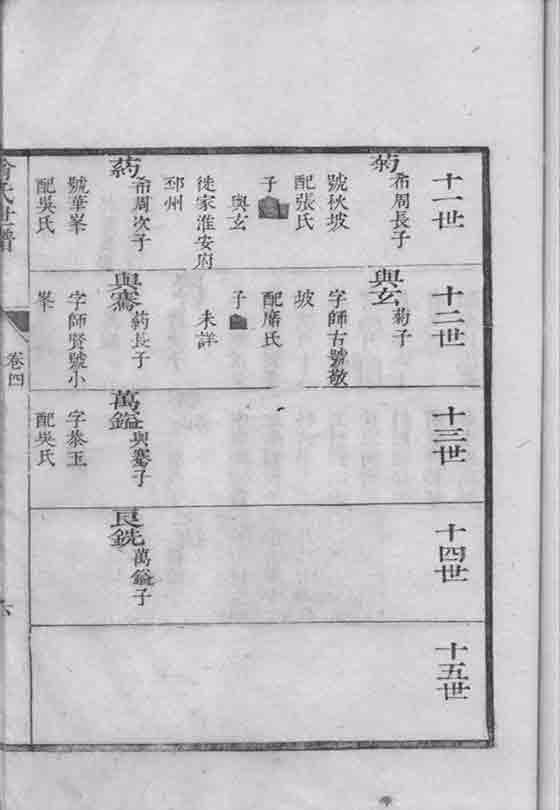 十一世
菊 希周長子
號秋坡
配張氏
子
與玄
徙家淮安府
邳州
葯 希周次子
號華峯
配吳氏
十二世
與玄 菊子
字師古號敬
坡
配席氏
子
未詳
與騫 葯長子
字師賢號小
峯
十三世
萬鎰 與騫子
字恭玉
配吳氏
十四世
良銑 萬鎰子
十五世
氏世譜
卷四
六